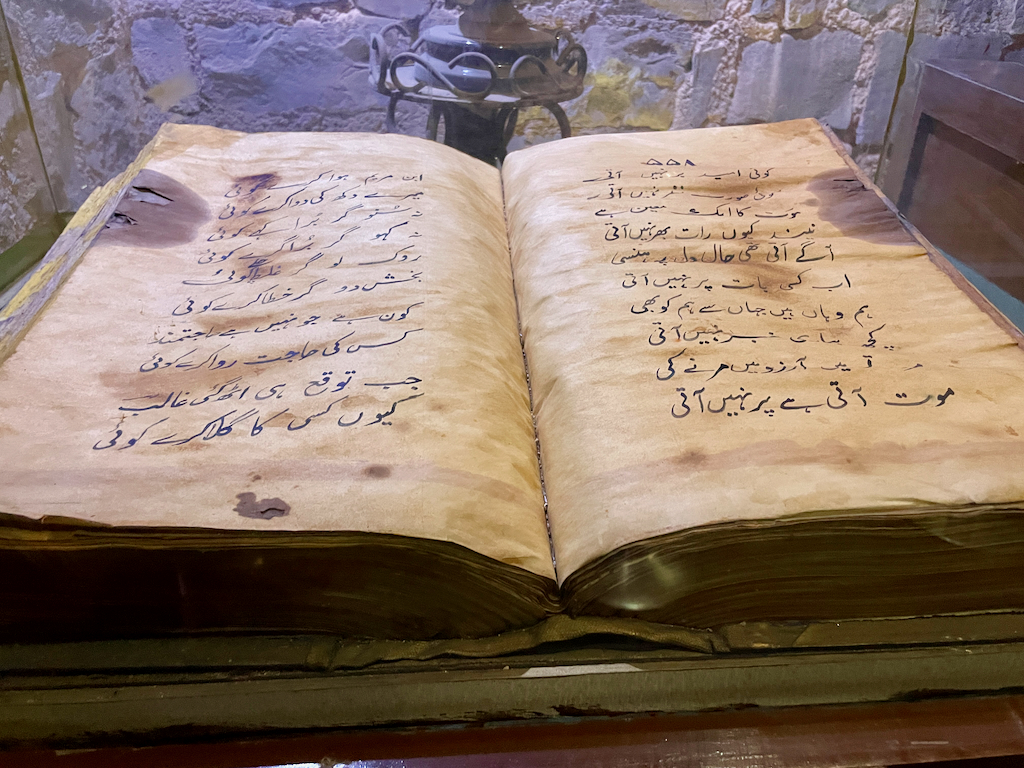 کوئی امید بر نہیں آتی
کوئی صورت نظر نہیں آتی
موت کا ایک معین ہے
نیند کیوں رات بھر نہیں آتی
آگے آتی تھی حال دل پر ہنسی
اب کسی بات پر نہیں آتی
ہم وہاں ہیں جہاں سے ہم کو بھی
کچھ ہماری خبر نہیں آتی
آرزو میں مرنے کی
موت آتی ہے پر نہیں آتی
ابن مریم ہوا کرے کوئی
میرے دکھ کی دوا کرے کوئی
نہ سنو گر برا کہے کوئی
نہ کہو گر برا کرے کوئی
روک لو گر غلط کوئی
بخش دو گر خطا کرے کوئی
کون ہے جو نہیں ہے حاجتمند
کس کی حاجت روا کرے کوئی
جب توقع ہی اٹھ گئی غالب
کیوں کسی کا گلا کرے کوئی